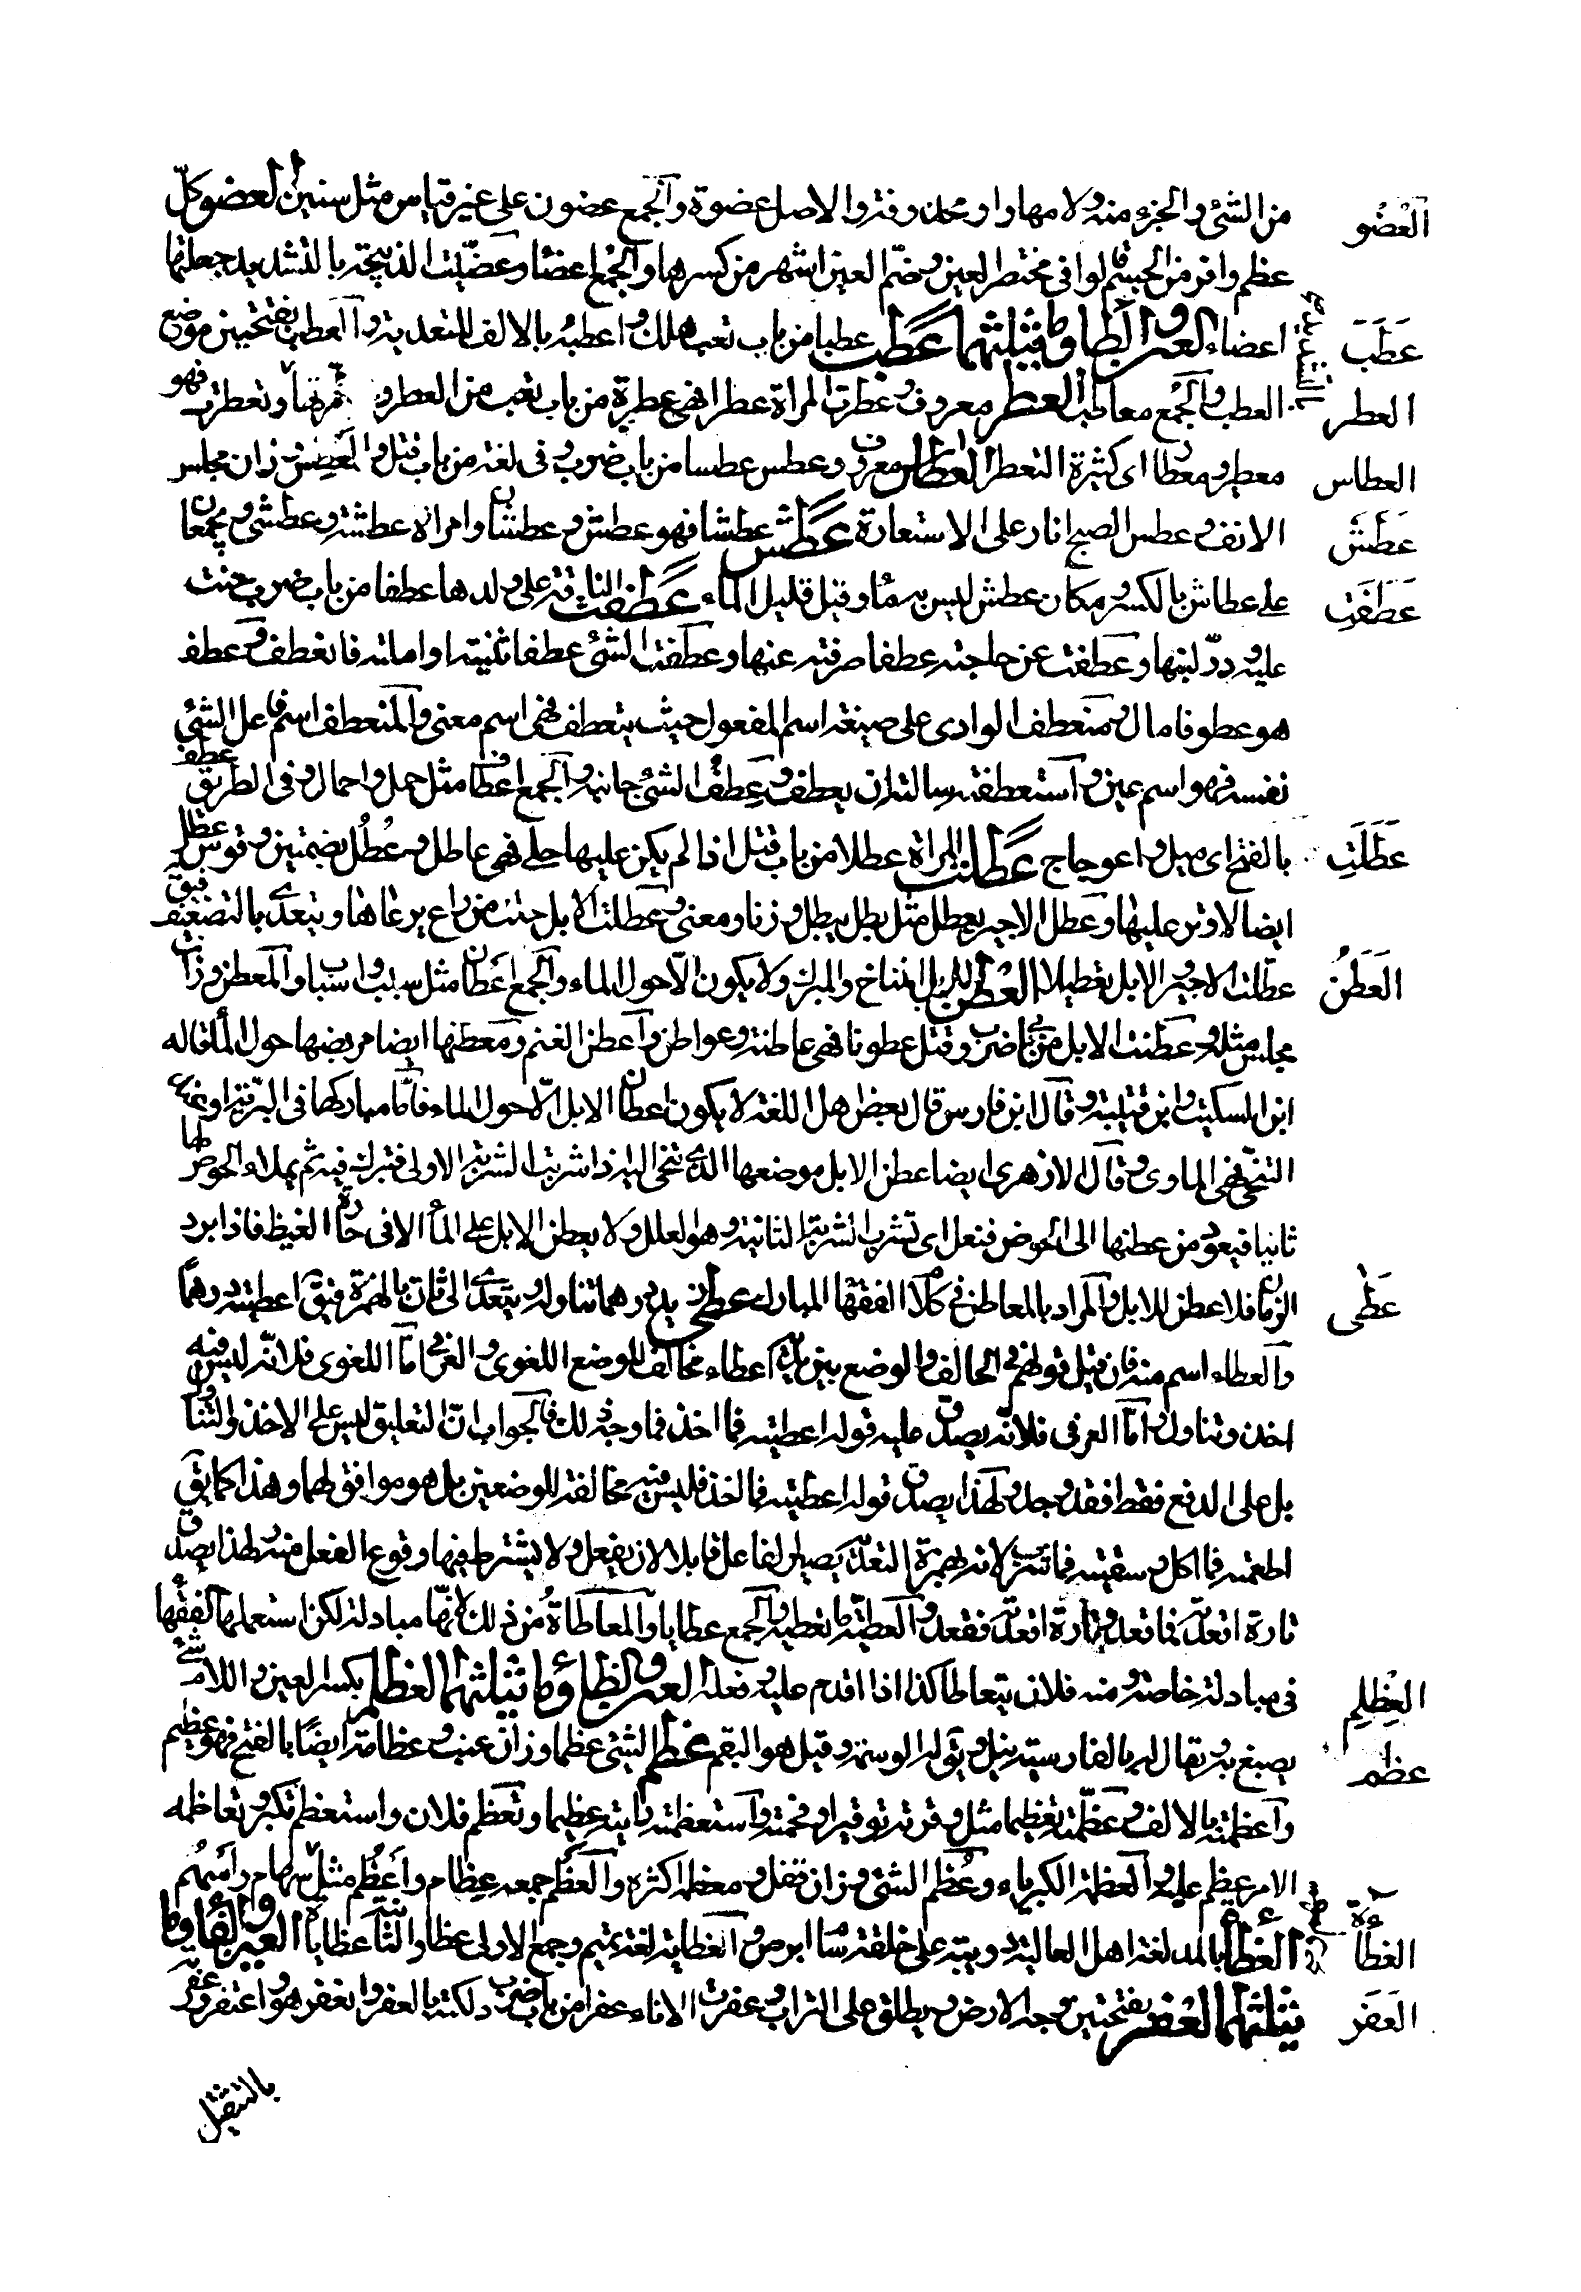 العضو من الشئ والجزء منه ولامها واو محذوفة والاصل عضوة والجمع عضون على غير قياس مثل سنين العضو كل
عظم وافر من الجسم قالوا في مختصر العين وضم العين اشهر من كسرها والجمع اعضاء وعضيت الذبيحة بالتشديد جعلتها
عطب اعضاء العين والطاء وما يثلثهما عطب عطبا من باب تعب هلك واعطبه بالالف للتعدية والمعطب بفتحتين موضع
العطر العطب والجمع معاطب العطر معروف وعطرت المراة عطرا فهي عطرة من باب تعب من العطر وتعطرت فهو
العطاس معطير ومعطار اي كثيرة التعطر العطاس معروف وعطس عطسا من باب ضرب وفي لغة من باب قتل والمعطس وزان مجلس
عطش الانف وعطس الصبح انار على الاستعارة عطش عطشا فهو عطش وعطشان وامراة عطشة وعطشى ويجمعان
عطفت على عطاش بالكسر ومكان عطش ليس به ماء وقيل قليل الماء عطفت الناقة على ولدها عطفا من باب ضرب حنت
عليه ودر لبنها وعطفته عن حاجته عطفا صرفته عنها وعطفت الشئ عطفا ثنيته او املته فانعطف وعطف
هو عطوفا مال ومنعطف الوادي على صيغة اسم المفعول حيث ينعطف فهي اسم معنى والمنعطف اسم فاعل الشئ
نفسه فهو اسم عين واستعطفته سالته ان يعطف وعطف الشئ جانبه والجمع اعطاف مثل حمل واحمال وفي الطريق عطف
عطلت بالفتح اي ميل واعوجاج عطلت المراة عطلا من باب قتل اذا لم يكن عليها حلي فهي عاطل وعطل بضمتين وقوس عطل
ايضا لا وتر عليها وعطل الاجير يعطل مثل بطل يبطل وزنا ومعنى وعطلت الابل خلت من راع يرعاها ويتعدى بالتضعيف فيق
العطن عطلت الاجير والابل تعطيلا العطن للابل المناخ والمبرك ولا يكون الا حول الماء والجمع اعطان مثل سبب واسباب والمعطن وزان
مجلس مثله وعطنت الابل من بابي ضرب وقتل عطونا فهي عاطنة وعواطن واعطن الغنم ومعطنها ايضا مربضها حول الماء قاله
ابن السكيت وابن قتيبة وقال ابن فارس قال بعض اهل اللغة لا يكون اعطان الابل الا حول الماء فاما مباركها في البرية او عند
التحي فهي الماوى وقال الازهري ايضا عطن الابل موضعها الذي تنحى اليه اذا شربت الشربة الاولى فتبرك فيه ثم يملاء الحوض لها
ثانيا فتعود من عطنها الى الحوض فتعل اي تشرب الشربة الثانية وهو العلل ولا يعطن الابل على الماء الا في حارة القيظ فاذا برد
عطى الزمان فلا عطن للابل والمراد بالمعاطن في كلام الفقها المبارك عطى زيد درهما تناوله ويتعدى الى ثان بالهمزة فيق اعطيته درهما
والعطاء اسم منه فان قيل قولهم في الحالف والوضع بين يديه اعطاء مخالف للوضع اللغوي والعرفي اما اللغوي فلانه ليس فيه
اخذ وتناول واما العرفي فلانه يصدق عليه قوله اعطيته فما اخذ فما وجه ذلك فالجواب ان التعليق ليس على الاخذ والتناول
بل على الدفع فقط فقد وجد ولهذا يصدق قوله اعطيته فما اخذ فليس فيه مخالفة للوضعين بل هو موافق لهما وهذا كما يق
اطعمته فما اكل وسقيته فما شرب لانه بهمزة التعدية يصير الفاعل قابلا لان يفعل ولا يشترط فيها وقوع الفعل منه ولهذا يصدق
تارة اقعدته فما قعد وتارة اقعدته فقعد والعطية ما تعطيه والجمع عطايا والمعاطاة من ذلك لانها مبادلة لكن استعملها الفقها
العظلم في مبادلة خاصة ومنه فلان يتعاطا كذا اذا اقدم عليه وفعله العين والظاء وما يثلثهما العظلم بكسر العين واللام شئ
عظم يصبغ به ويقال له بالفارسية نيل ويق له الوسمة وقيل هو البقم عظم الشئ عظما وزان عنب وعظامة ايضا بالفتح فهو عظيم
واعظمته بالالف وعظمته تعظيما مثل وقرته توقيرا وفخمته واستعظمته رايته عظيما وتعظم فلان واستعظم تكبر وتعاظمه
الامر عظم عليه والعظمة الكبرياء وعظم الشئ وزان قفل ومعظمه اكثره والعظم جمعه عظام واعظم مثل سهام واسهم
العظاءة العظاءة بالمد لغة اهل العالية دويبة على خلقة سام ابرص والعظاية لغة تميم وجمع الاولى عظاء والثانية عظايا العين والفاء وما
العفر يثلثهما العفر بفتحتين وجه الارض ويطلق على التراب وعفرت الاناء عفرا من باب ضرب دلكته بالعفر وانعفر هو واعتفر وعفرته
بالتثقيل